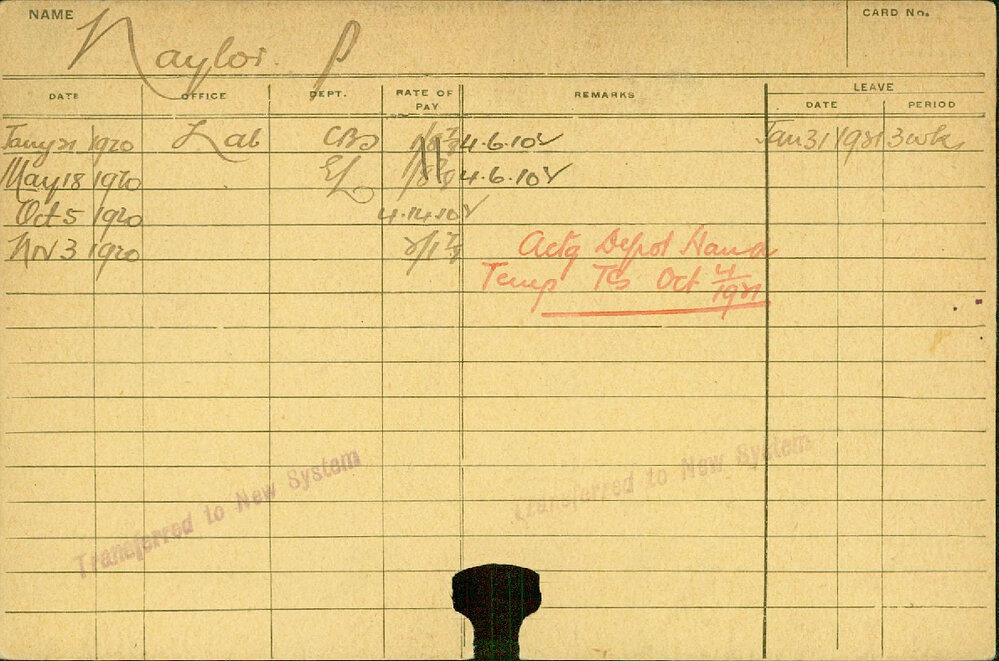 NAME
CARD No.
Naylor. P
DATE OFFICE DEPT. RATE OF PAY REMARKS LEAVE
DATE PERIOD
Jany 21 1920 Lab 4.6.10 Jan 31 1921 3 wks
May 18 1920 4.6.10
Oct 5 1920 4.14.10
Nov 3 1920 Actg Depot Hand
Temp Oct 4/1921
Transferred to New System
Transferred to New System